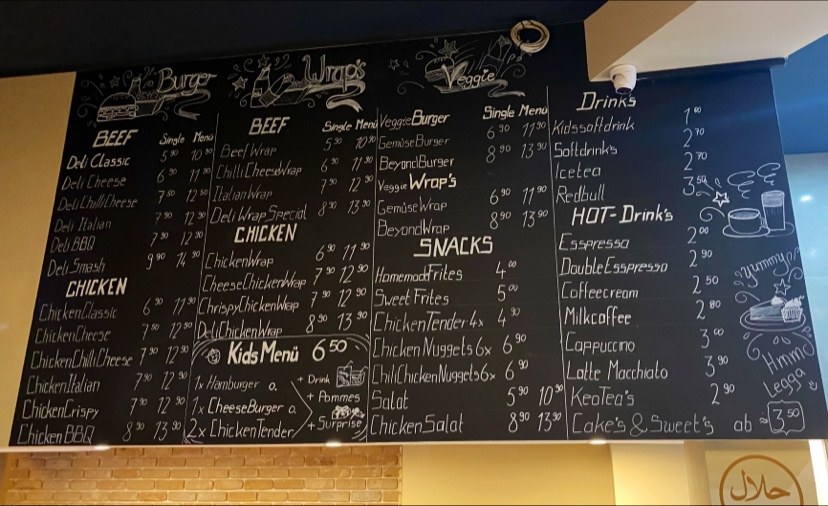 Burger
BEEF Single Menü
Deli Classic 5⁹⁰ 10⁹⁰
Deli Cheese 6⁹⁰ 11⁹⁰
Deli ChiliCheese 7⁵⁰ 12⁵⁰
Deli Italian 7⁹⁰ 12⁹⁰
Deli BBQ 7⁹⁰ 12⁹⁰
Deli Smash 9⁹⁰ 14⁹⁰
CHICKEN
ChickenClassic 6⁹⁰ 11⁹⁰
ChickenCheese 7⁵⁰ 12⁵⁰
ChickenChilliCheese 7⁹⁰ 12⁹⁰
ChickenItalian 7⁹⁰ 12⁹⁰
ChickenCrispy 7⁹⁰ 12⁹⁰
ChickenBBQ 8⁹⁰ 13⁹⁰
Wrap's
BEEF Single Menü
BeefWrap 5⁹⁰ 10⁹⁰
ChilliCheeseWrap 6⁹⁰ 11⁹⁰
ItalianWrap 7⁹⁰ 12⁹⁰
Deli Wrap Special 8⁹⁰ 13⁹⁰
CHICKEN
ChickenWrap 6⁹⁰ 11⁹⁰
CheeseChickenWrap 7⁹⁰ 12⁹⁰
ChrispyChickenWrap 7⁹⁰ 12⁹⁰
DeliChickenWrap 8⁹⁰ 13⁹⁰
Kids Menü 6⁵⁰
1x Hamburger o.
1x CheeseBurger o.
2x ChickenTender
+ Drink
+ Pommes
+ Surprise
Veggie
VeggieBurger Single Menü
GemüseBurger 6⁹⁰ 11⁹⁰
BeyondBurger 8⁹⁰ 13⁹⁰
Veggie Wrap's
GemüseWrap 6⁹⁰ 11⁹⁰
BeyondWrap 8⁹⁰ 13⁹⁰
SNACKS
HomemadFrites 4⁰⁰
Sweet Frites 5⁰⁰
ChickenTender 4x 4⁹⁰
Chicken Nuggets 6x 6⁹⁰
ChiliChickenNuggets 6x 6⁹⁰
Salat 5⁹⁰ 10⁹⁰
ChickenSalat 8⁹⁰ 13⁹⁰
Drinks
Kidssoftdrink 1⁰⁰
Softdrink's 2⁷⁰
Icetea 2⁷⁰
Redbull 3⁵⁰
HOT-Drink's
Esspresso 2⁰⁰
DoubleEsspresso 2⁹⁰
Coffeecream 2⁵⁰
Milkcoffee 2⁸⁰
Cappuccino 3⁰⁰
Latte Macchiato 3⁹⁰
KeoTea's 2⁹⁰
Cake's & Sweet's ab 3⁵⁰
yummy
Hmmo
Leaga
حلال